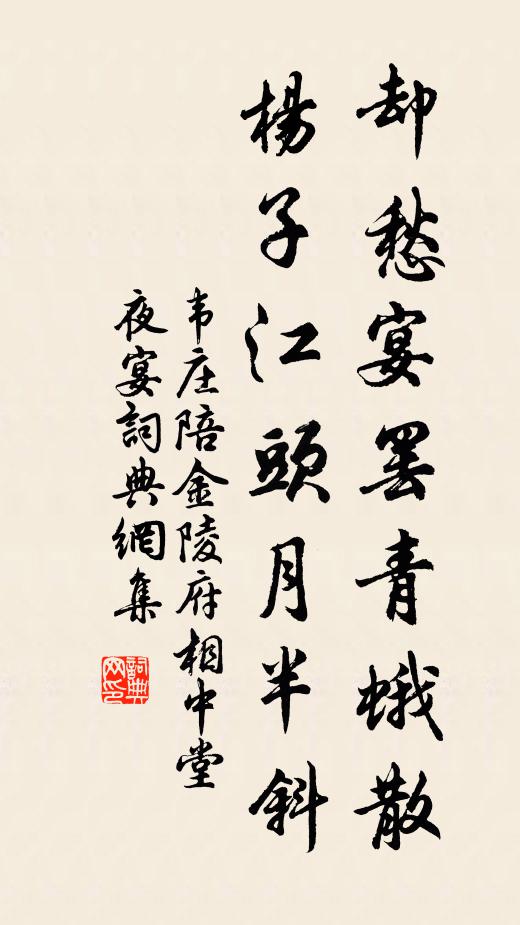 却愁宴罢青蛾散
楊子江頭月半斜
韦庄陪金陵府相中堂
夜宴詞典網集
詞典
网印